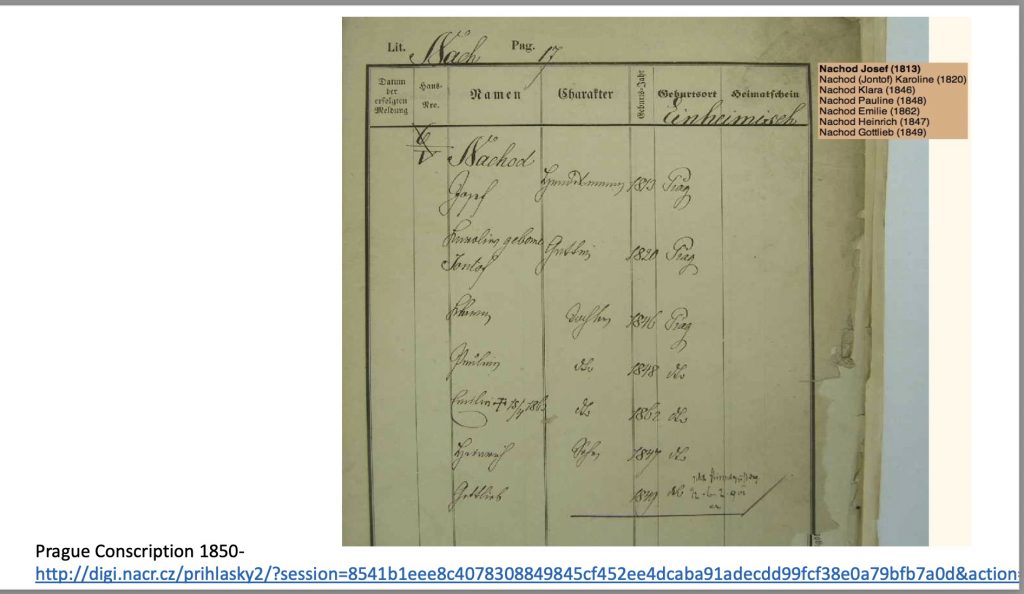 Lit. Nach Pag. 17
Datum der erfolgten Meldung Haus-Nro. Namen Charakter Geburts-Jahr Geburtsort Heimatschein
Einheimisch
Nachod
Josef 1813 Prag
Karolin geborne Gattin 1820 Prag
Jontof
Klara Tochter 1846 Prag
Paulin do 1848 do
Emilie do 1862 do
Heinrich Sohn 1847 do
Gottlieb 1849 do
Nachod Josef (1813)
Nachod (Jontof) Karoline (1820)
Nachod Klara (1846)
Nachod Pauline (1848)
Nachod Emilie (1862)
Nachod Heinrich (1847)
Nachod Gottlieb (1849)
Prague Conscription 1850-
http://digi.nacr.cz/prihlasky2/?session=8541b1eee8c4078308849845cf452ee4dcaba91adecdd99fcf38e0a79bfb7a0d&action=